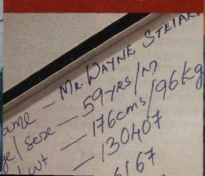 ame — MR. WAYNE
ge/Sex — 59YRS/M
wt — 176cms/96kg
— 130407
6167